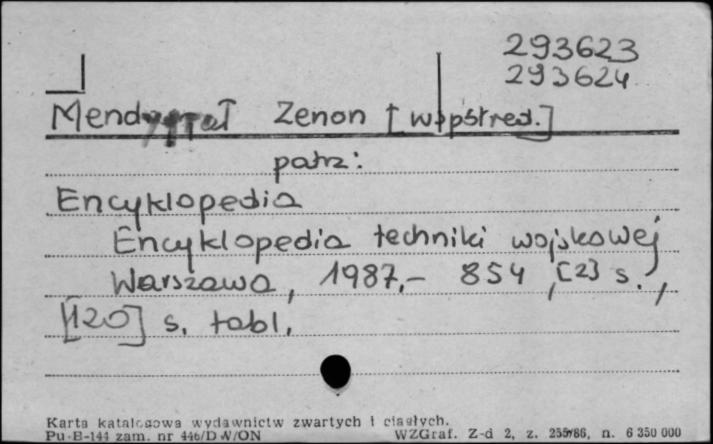 293623
293624
Zenon [współred.]
patrz:
Encyklopedia
Encyklopedia techniki wojskowej
Warszawa, 1987.- 854, [2] s.,
[120] s. tabl.
Karta katalogowa wydawnictw zwartych i ciągłych.
Pu-B-144 zam. nr 446/DW/ON WZGraf. Z-d 2, z. 255/86, n. 6 350 000